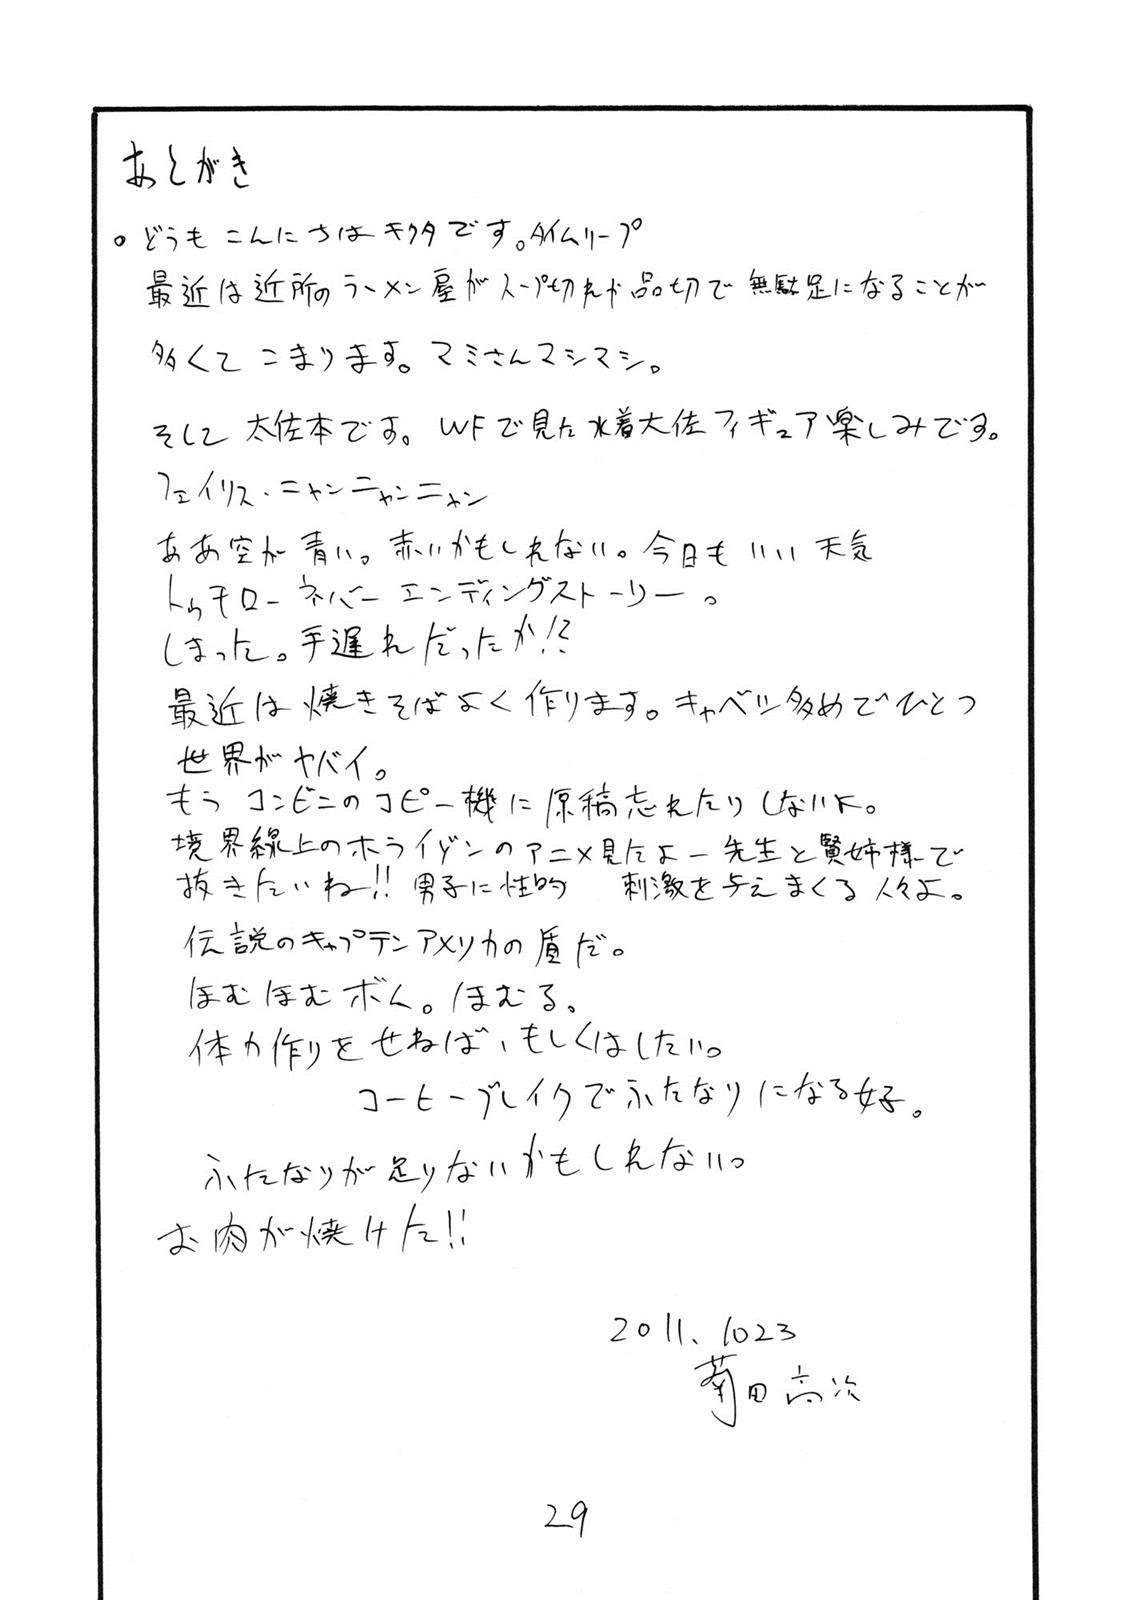 あとがき
。どうも こんにちは キクタです。タイムリープ
最近は近所のラーメン屋がスープ切れか品切で無駄足になることが
多くて こまります。マミさんマシマシ。
そして 大佐本です。WFで見た水着大佐フィギュア楽しみです。
フェイリス・ニャンニャンニャン
ああ空が青い。赤いかもしれない。今日もいい天気
トゥモローネバーエンディングストーリー。
しまった。手遅れだったか!?
最近は焼きそばよく作ります。キャベツ多めでひとつ
世界がヤバイ。
もうコンビニのコピー機に原稿忘れたりしないよ。
境界線上のホライゾンのアニメ見たよー先生と賢姉様で
抜きたいね!!男子に性的 刺激を与えまくる人々よ。
伝説のキャプテンアメリカの盾だ。
ほむほむボム。ほむる。
体力作りをせねば、もしくはしたい。
コーヒーブレイクでふたなりになる好。
ふたなりが足りないかもしれない。
お肉が焼けた!!
2011.1023
菊田高次
29